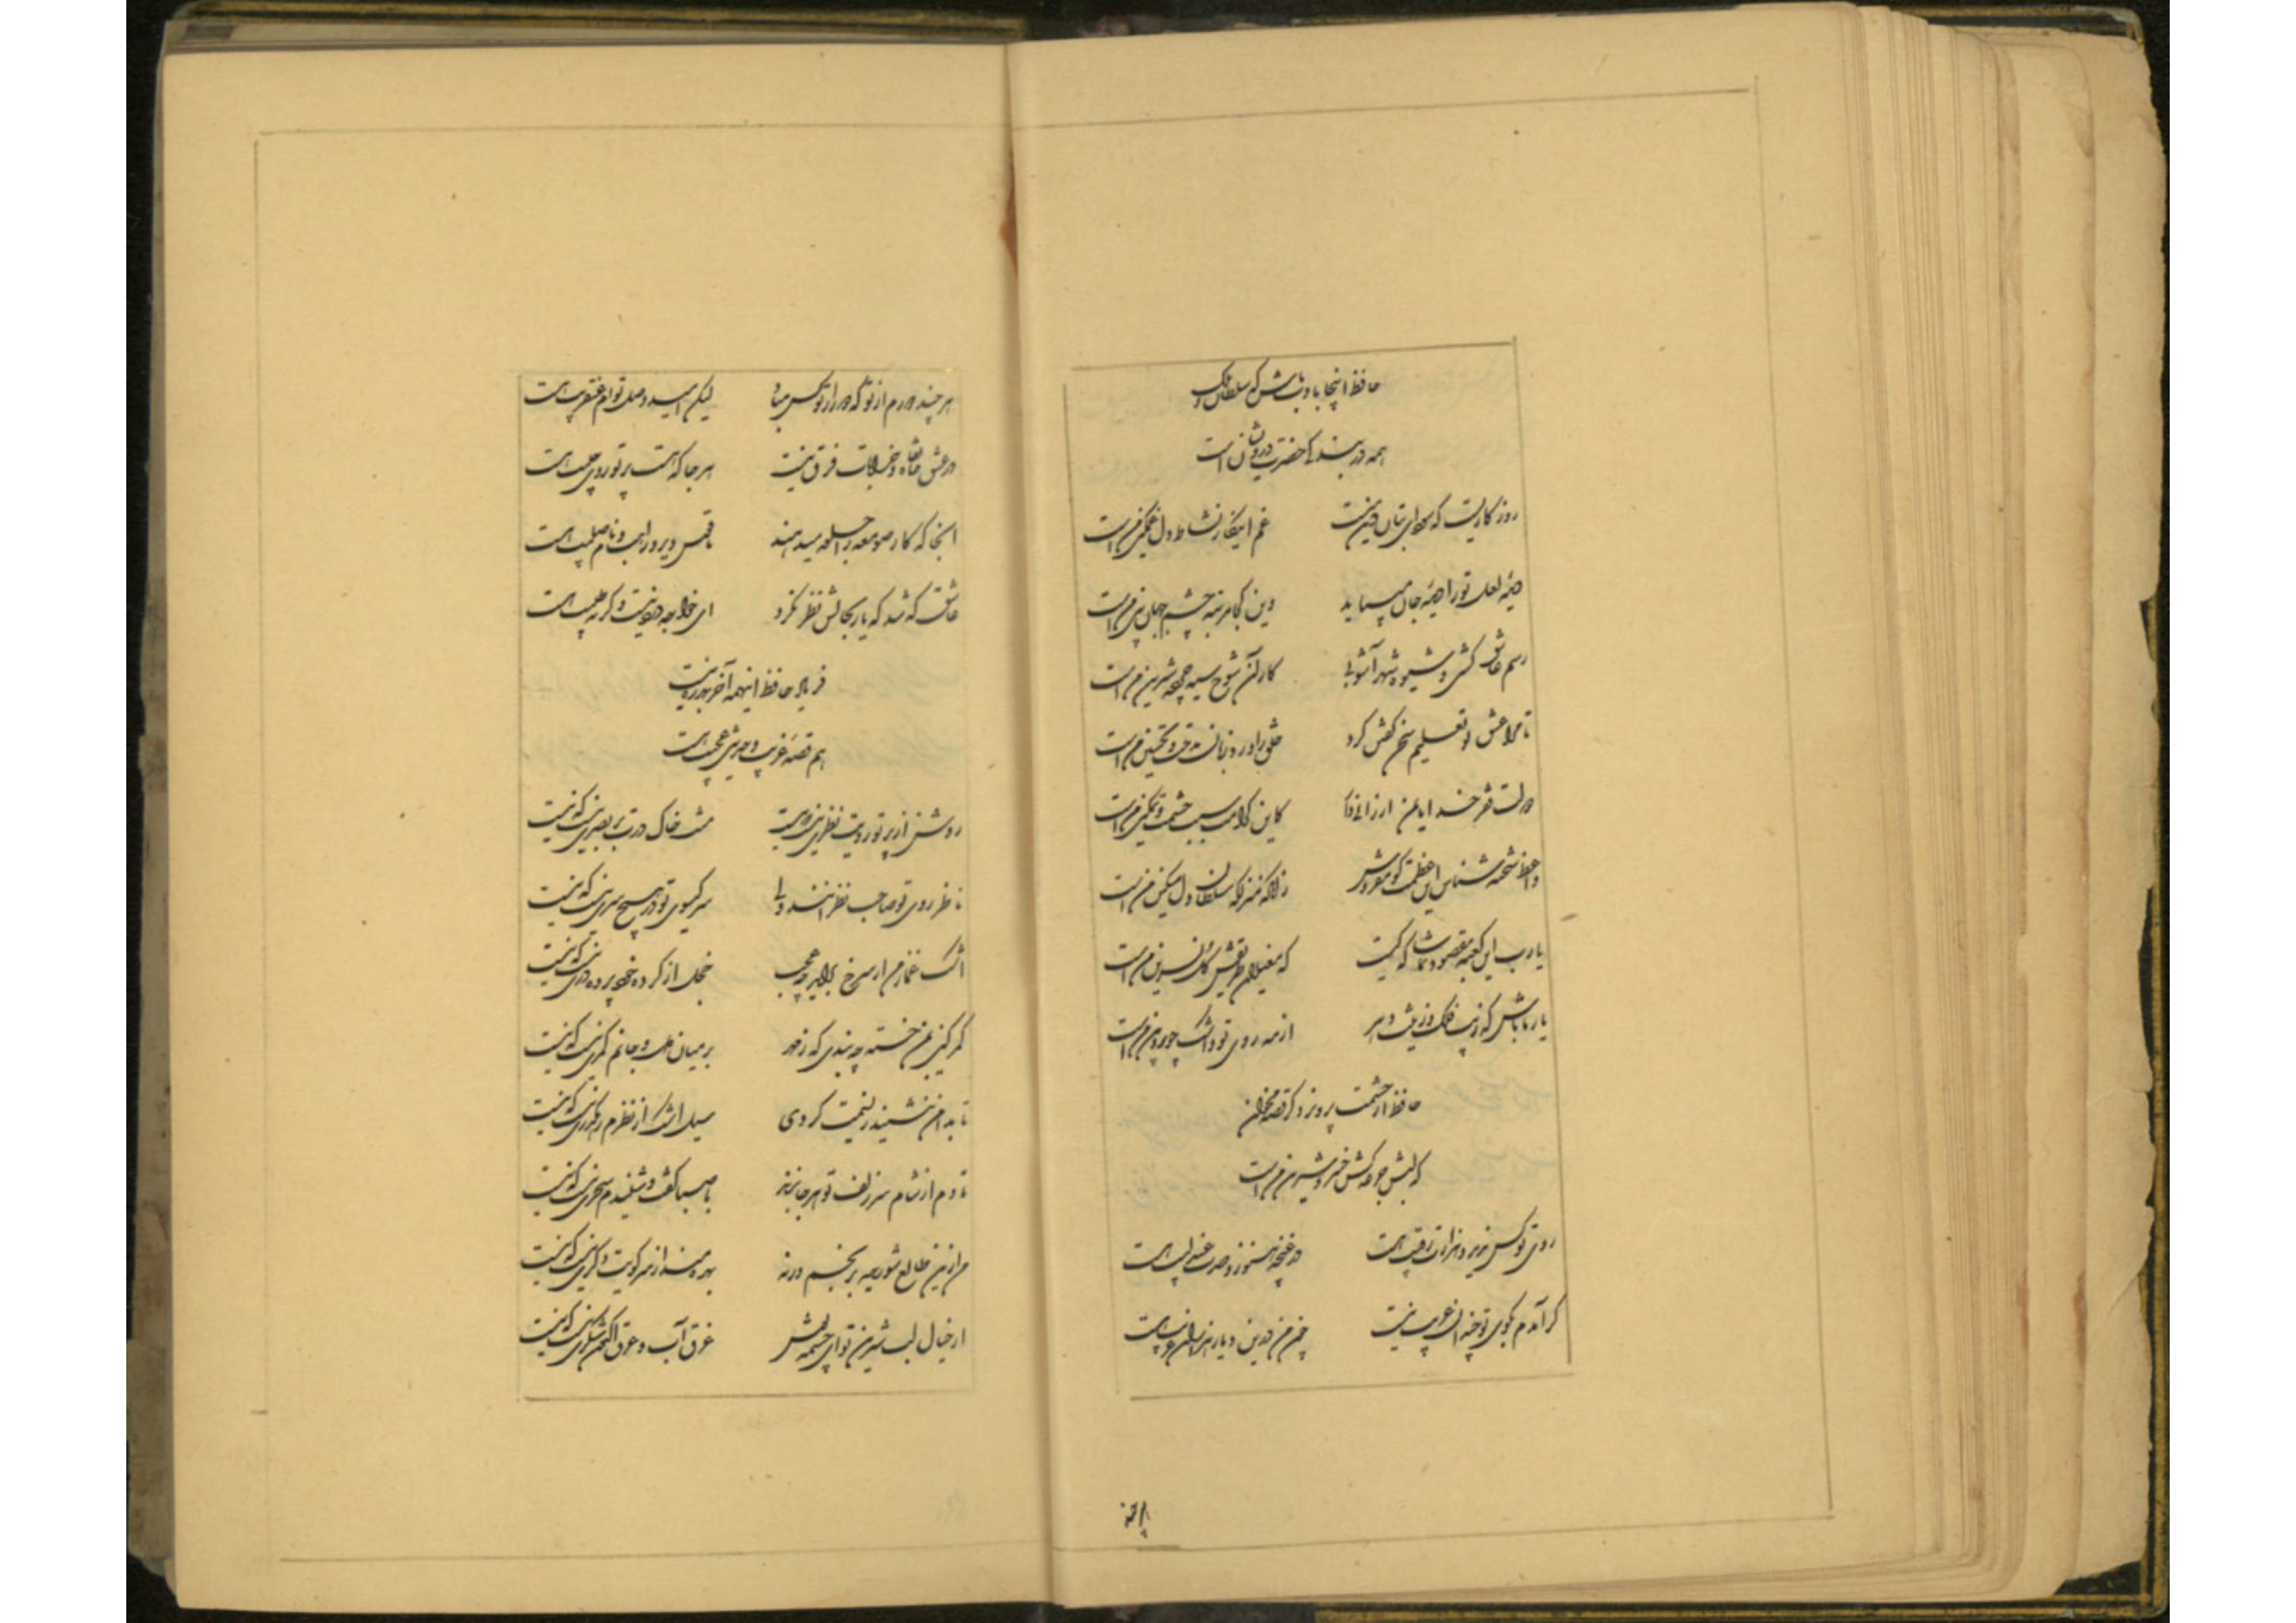 حافظ اینجا بادب باش که سلطان و ملک
همه در بندگی حضرت درویشانست
روزگاریست که سودای بتان دین منست غم اینکار نشاط دل غمگین من است
دیدهٔ لعل تو را دیدهٔ جان می‌باید وین کجا مرتبهٔ چشم جهان بین من است
رسم عاشق کشی و شیوه شهر آشوبی کار آن شوخ سیه چرده شیرین من است
تا مرا عشق تو تعلیم سخن گفتن کرد خلق را ورد زبان مدحت و تحسین من است
دولت فقر خدایا بمن ارزانی دار کاین کرامت سبب حشمت و تمکین من است
واعظ شحنه شناس این عظمت گو مفروش زانکه منزلگه سلطان دل مسکین من است
یا رب این کعبه مقصود تماشاگه کیست که مغیلان طریقش گل و نسرین من است
یار ما باش که زیب فلک و زینت دهر از مه روی تو و اشک چو پروین من است
حافظ از حشمت پرویز دگر قصه مخوان
که لبش جرعه کش خسرو شیرین من است
روی تو کس ندید و هزارت رقیب است در غنچه هنوز و صدت عندلیب است
گر آمدم بکوی تو چندان غریب نیست چون من درین دیار هزاران غریب است
هرچند
هرچند دورم از تو که دور از تو کس مباد لیکن امید وصل توام عنقریب است
در عشق خانقاه و خرابات فرق نیست هر جا که هست پرتو روی حبیب است
آنجا که کار صومعه را جلوه میدهند ناقوس دیر و راهب و نام صلیب است
عاشق که شد که یار بحالش نظر نکرد ای خواجه درد نیست وگرنه طبیب است
فریاد حافظ اینهمه آخر بهرزه نیست
هم قصهٔ غریب و حدیثی عجیب است
روشن از پرتو رویت نظری نیست که نیست منت خاک درت بر بصری نیست که نیست
ناظر روی تو صاحب نظرانند ولی سر گیسوی تو در هیچ سری نیست که نیست
اشک غماز من ار سرخ برآید چه عجب خجل از کرده خود پرده دری نیست که نیست
کمر کین بمن خسته چه بندی که ز مهر بر میان دل و جانم کمری نیست که نیست
تا بدامن ننشیند ز نسیمت گردی سیل اشک از نظرم رهگذری نیست که نیست
تا دم از شام سر زلف تو هر جا نزنند با صبا گفت و شنیدم سحری نیست که نیست
من ازین طالع شوریده برنجم ورنه بهره‌مند از سر کویت دگری نیست که نیست
از خیال لب شیرین تو ای چشمه نوش غرق آب و عرق اکنون شکری نیست که نیست